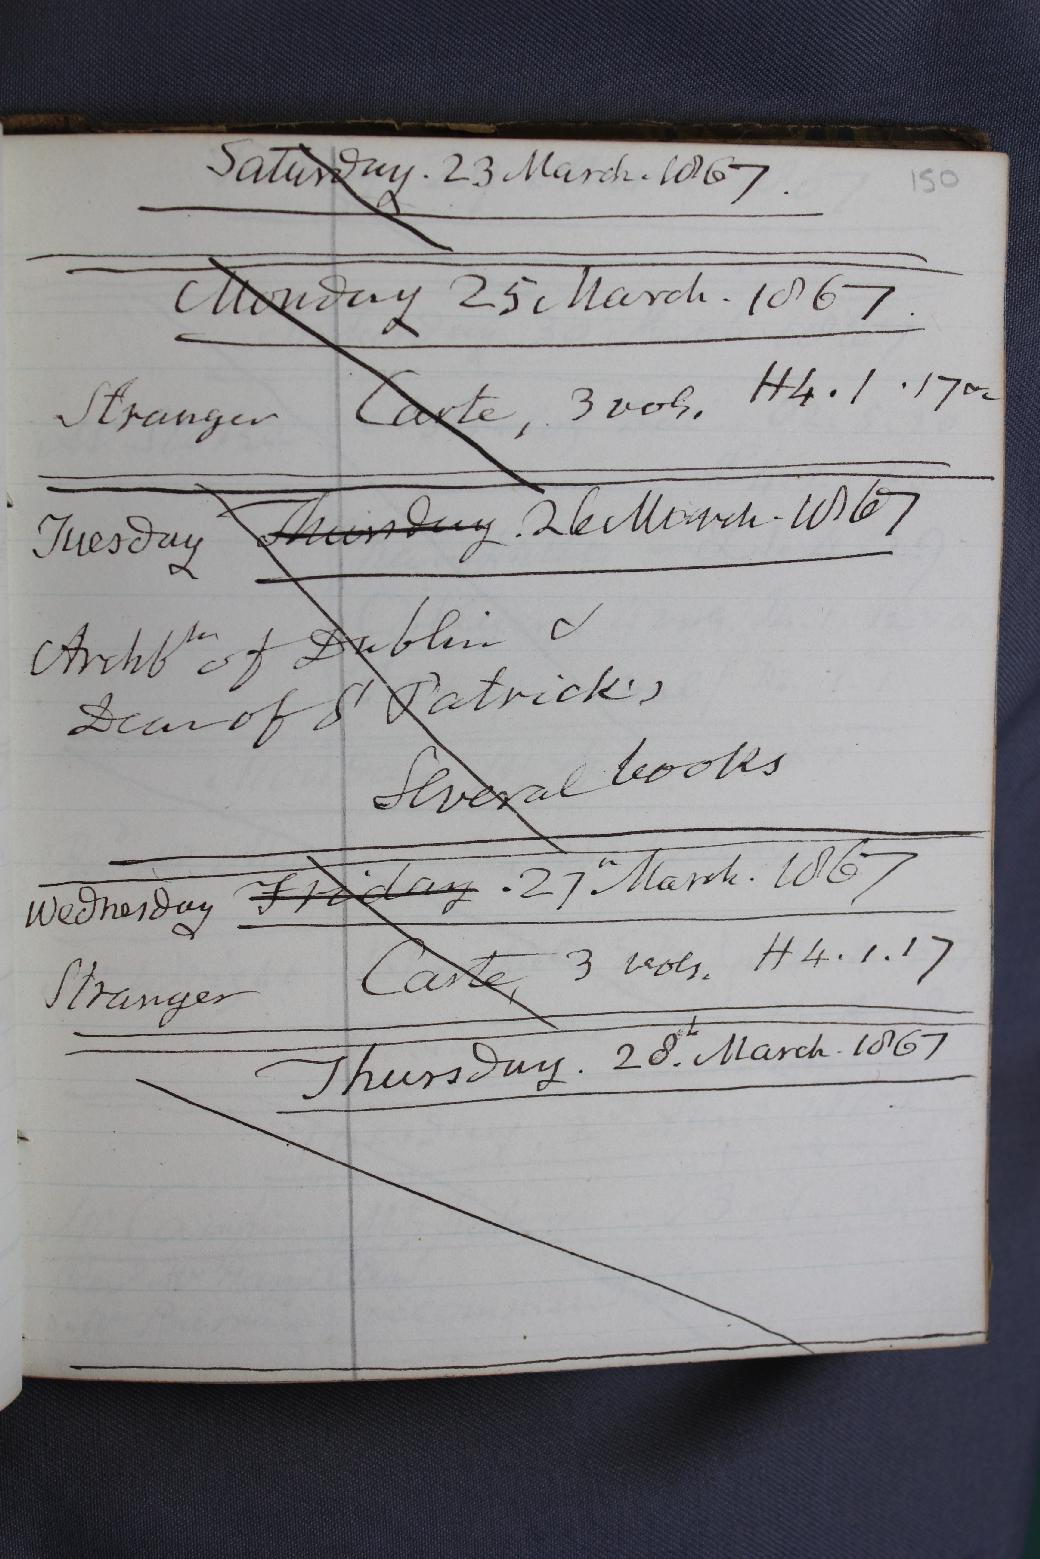 150
Saturday. 23 March. 1867.
Monday 25 March. 1867.
Stranger Carte, 3 vols. H4.1.17
Tuesday Thursday. 26 March. 1867
Archb of Dublin &
Dean of St Patrick's
Several books
Wednesday Friday. 27th March. 1867
Stranger Carte, 3 vols. H4.1.17
Thursday. 28th. March. 1867